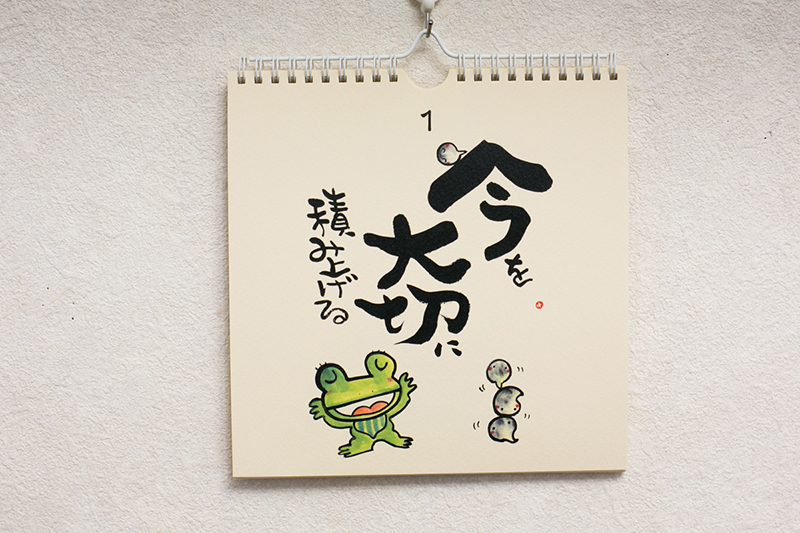 1
今を
大切に
積み上げる